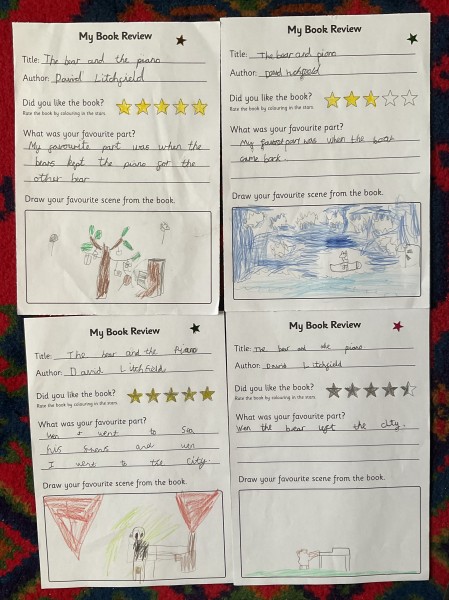 My Book Review
Title: The bear and the piano
Author: David Litchfield
Did you like the book?
Rate the book by colouring in the stars.
What was your favourite part?
My favourite part was when the
bears kept the piano for the
other bear
Draw your favourite scene from the book.
My Book Review
Title: The bear and piano
Author: David
Did you like the book?
Rate the book by colouring in the stars.
What was your favourite part?
My part was when the
came back.
Draw your favourite scene from the book.
My Book Review
Title: The bear and the Piano
Author: David
Did you like the book?
Rate the book by colouring in the stars.
What was your favourite part?
went to
his and wen
I went to the city.
Draw your favourite scene from the book.
My Book Review
Title: The bear and the piano
Author: David Litchfield
Did you like the book?
Rate the book by colouring in the stars.
What was your favourite part?
Wen the bear left the city.
Draw your favourite scene from the book.